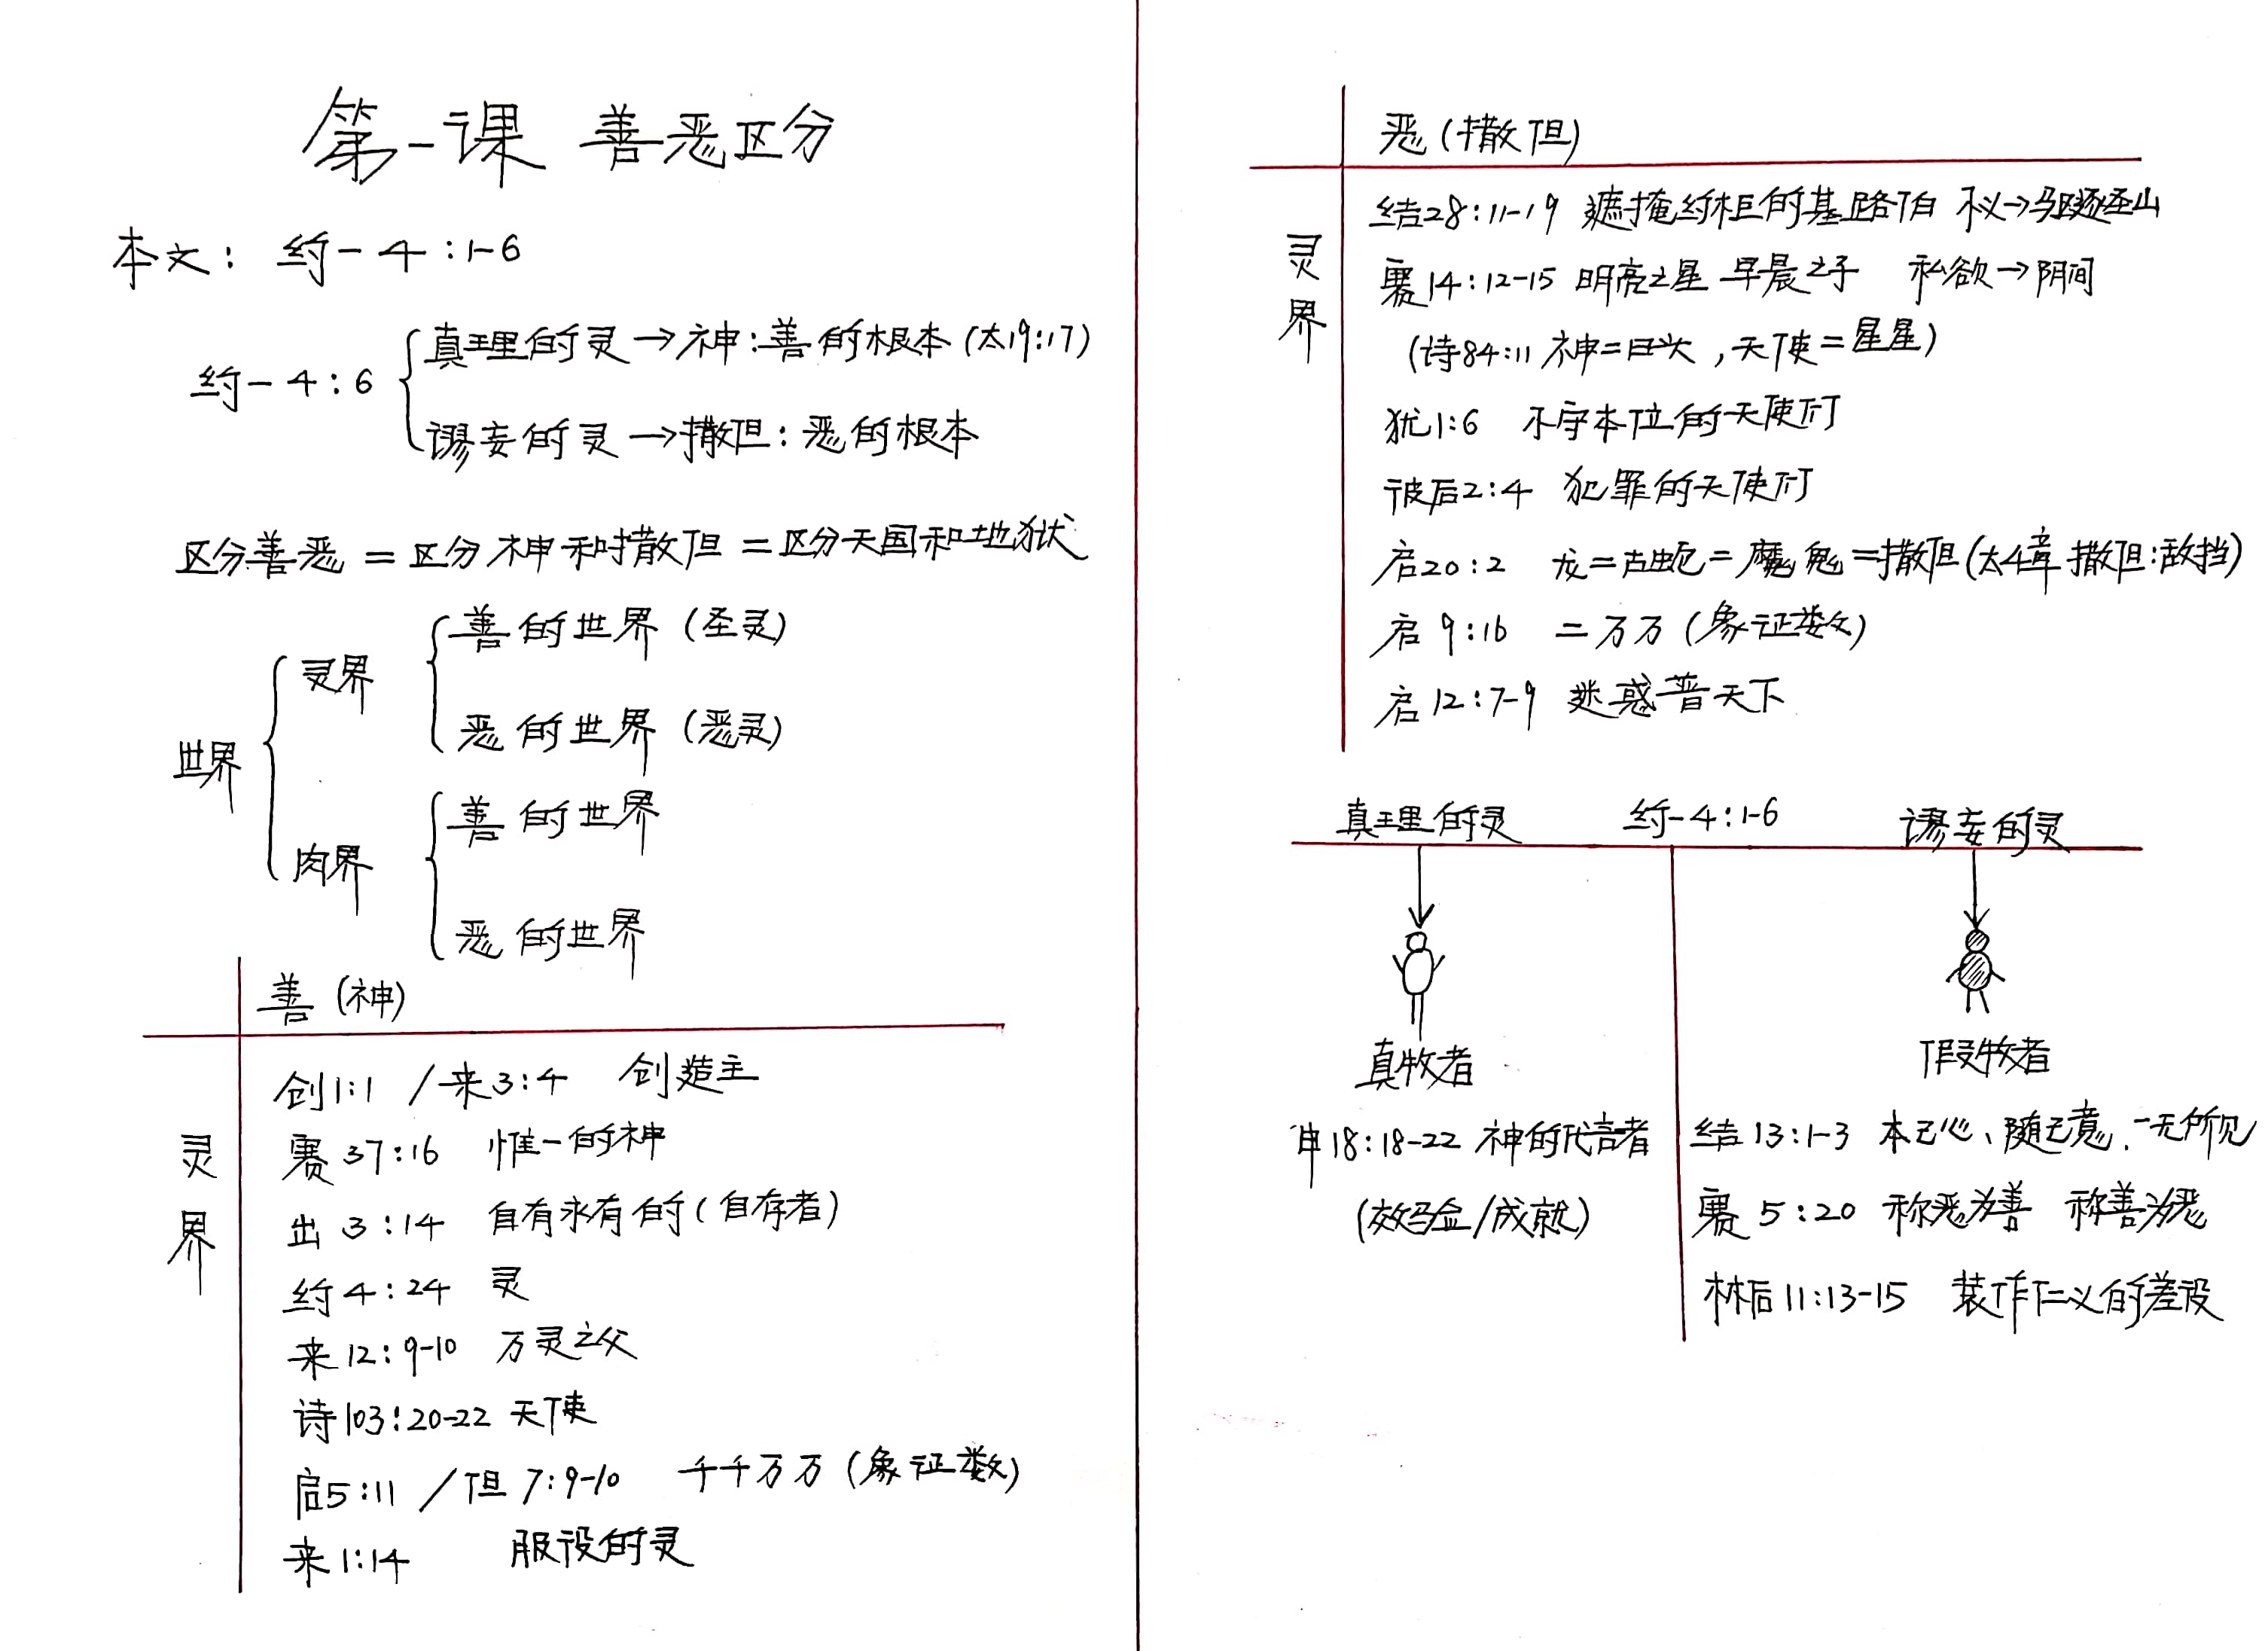 第一课 善恶区分
本文： 约一 4:1-6
约一 4:6
真理的灵→神:善的根本(太19:17)
谬妄的灵→撒但：恶的根本
区分善恶 = 区分神和撒但 = 区分天国和地狱
世界
灵界
善的世界 (圣灵)
恶的世界 (恶灵)
肉界
善的世界
恶的世界
善 (神)
灵界
创1:1 /来3:4 创造主
赛 37:16 惟一的神
出 3:14 自有永有的(自存者)
约 4:24 灵
来 12:9-10 万灵之父
诗103:20-22 天使
启5:11 /但 7:9-10 千千万万 (象征数)
来 1:14 服役的灵
恶 (撒但)
灵界
结28:11-19 遮掩约柜的基路伯 不义→驱逐圣山
赛14:12-15 明亮之星 早晨之子 私欲→阴间
(诗84:11 神=日头，天使=星星)
犹1:6 不守本位的天使们
彼后2:4 犯罪的天使们
启20:2 龙=古蛇=魔鬼=撒但(太4章 撒但:敌挡)
启 9:16 二万万 (象征数)
启 12:7-9 迷惑普天下
真理的灵 约一4:1-6 谬妄的灵
真牧者 假牧者
申18:18-22 神的代言者
(效验/成就)
结 13:1-3 本己心、随己意、一无所见
赛 5:20 称恶为善 称善为恶
林后11:13-15 装作仁义的差役